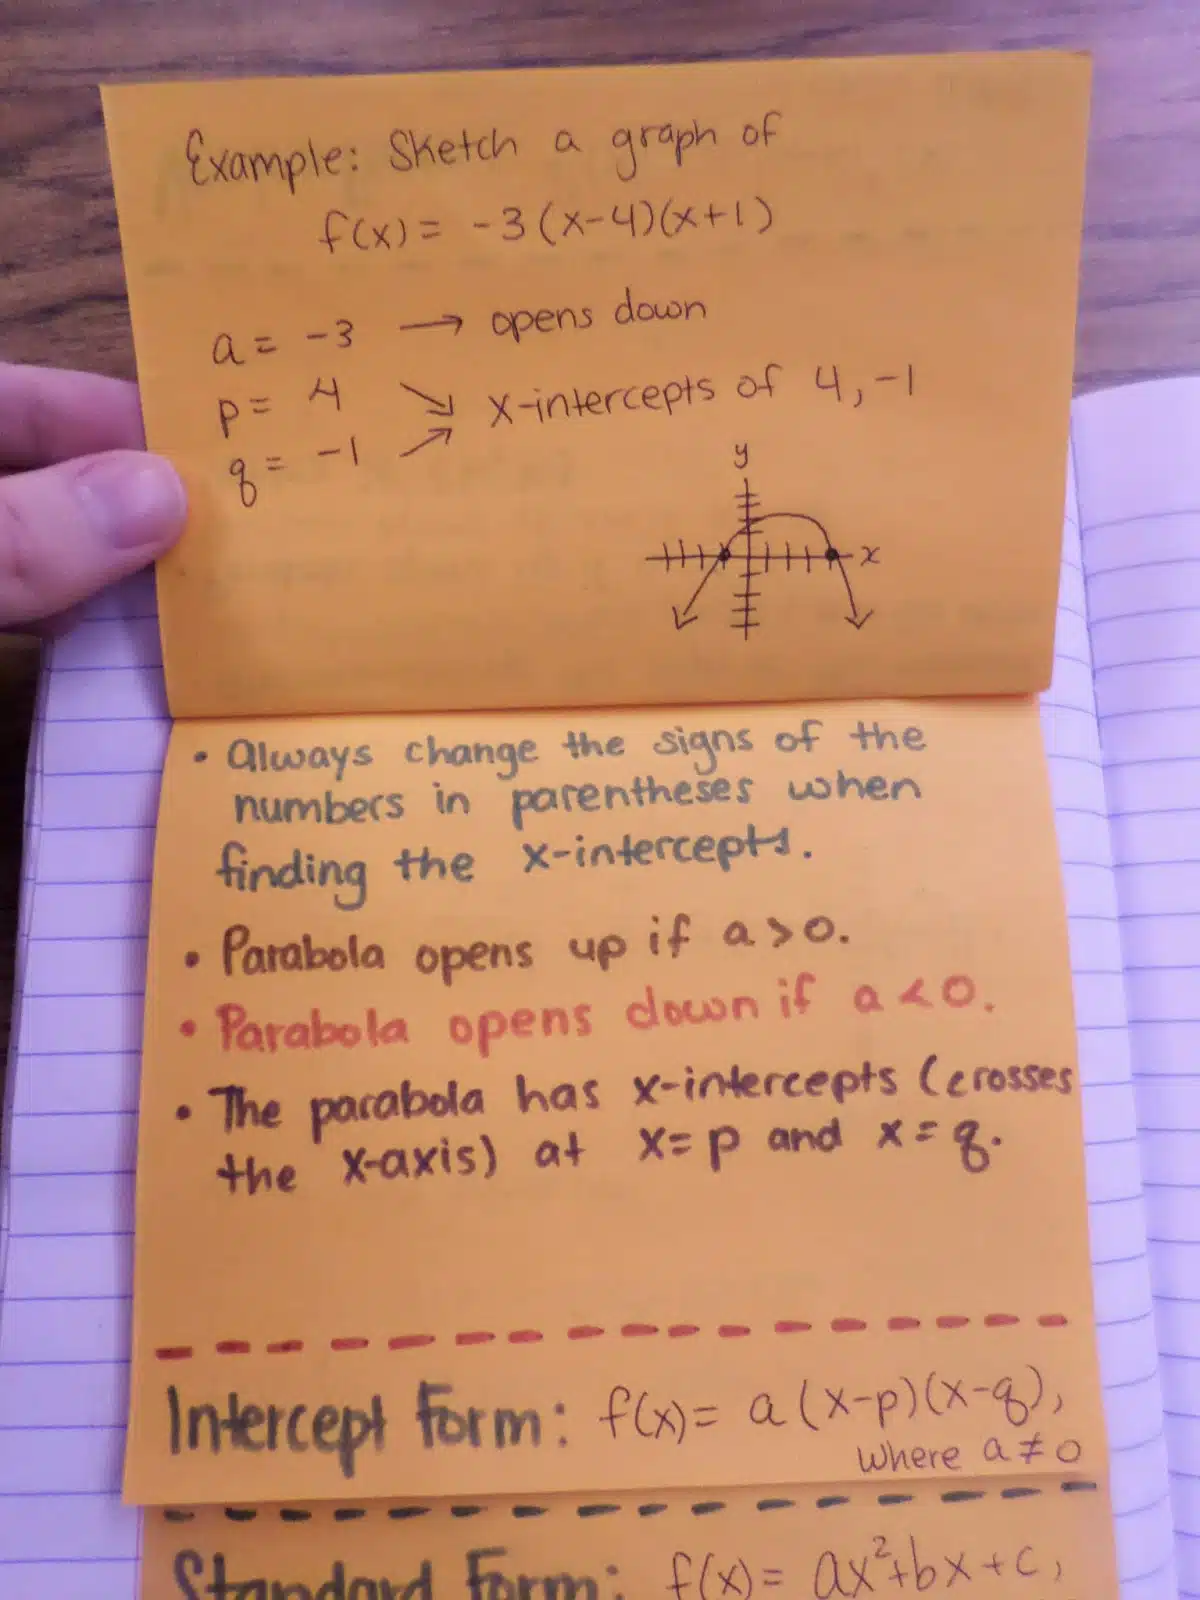 Example: Sketch a graph of
f(x) = -3(x-4)(x+1)
a = -3 → opens down
p = 4
x-intercepts of 4, -1
q = -1
y
x
• Always change the signs of the
numbers in parentheses when
finding the x-intercepts.
• Parabola opens up if a > 0.
• Parabola opens down if a < 0.
• The parabola has x-intercepts (crosses
the x-axis) at x = p and x = q.
Intercept Form: f(x) = a(x-p)(x-q),
where a ≠ 0
Standard Form: f(x) = ax²+bx+c,